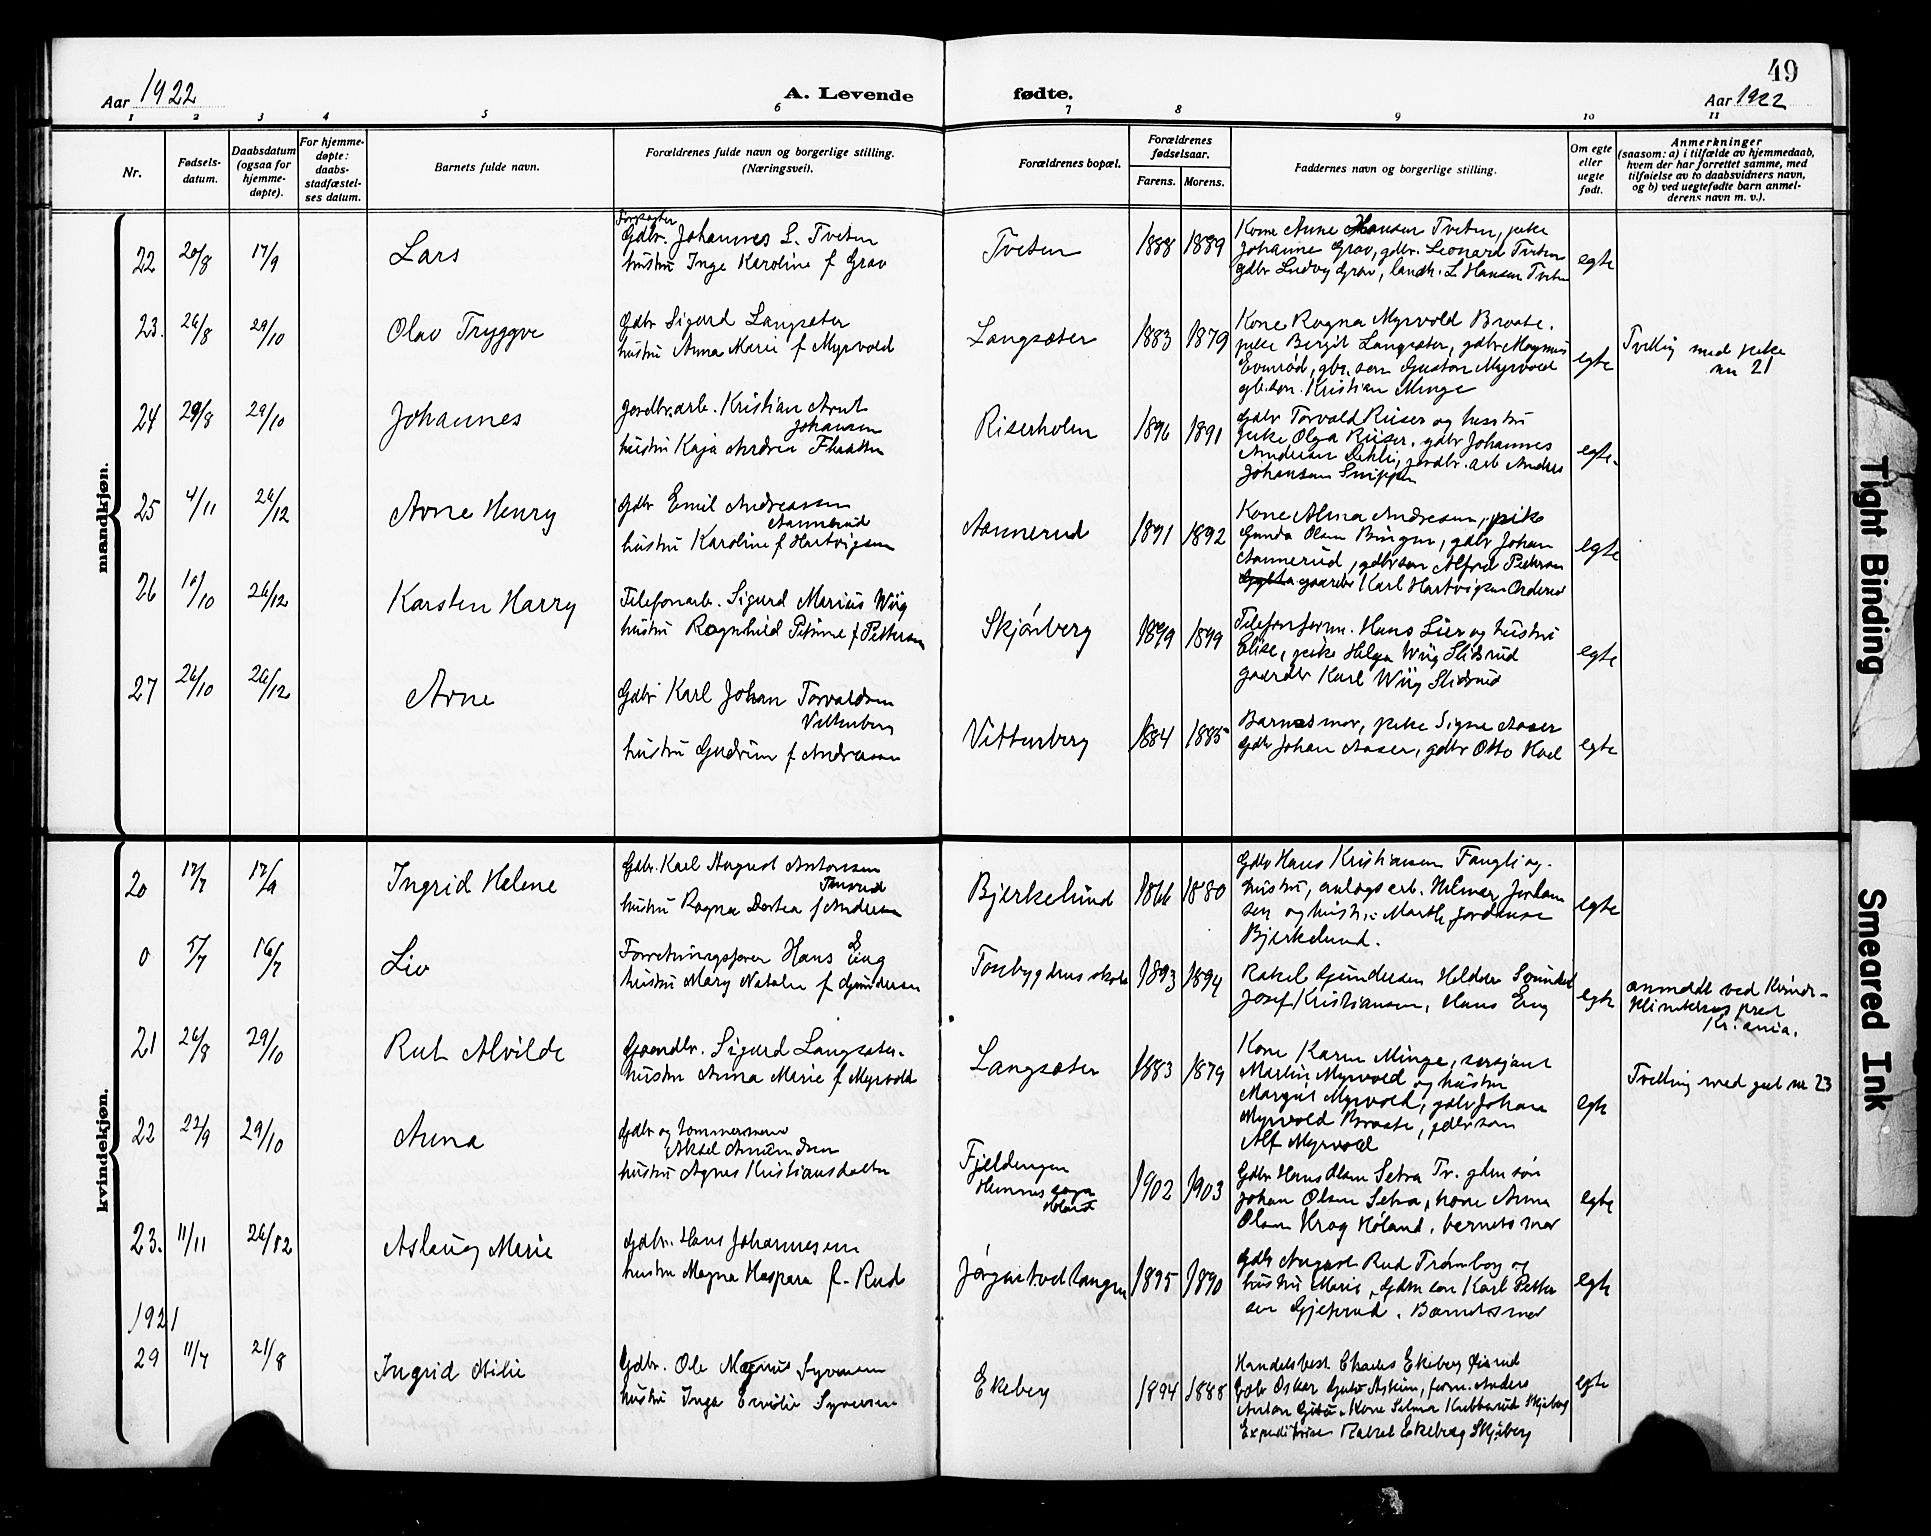 49
Aar 1922
A. Levende fødte.
Aar 1922
1 2 3 4 5 6 7 8 9 10 11
Nr.
Fødsels-
datum.
Daabsdatum
(ogsaa for
hjemme-
døpte).
For hjemme-
døpte:
daabs-
stadfæstel-
ses datum.
Barnets fulde navn.
Forældrenes fulde navn og borgerlige stilling.
(Næringsvei).
Forældrenes bopæl.
Forældrenes
fødselsaar.
Farens. Morens.
Faddernes navn og borgerlige stilling.
Om egte
eller
uegte
født.
Anmerkninger
(saasom: a) i tilfælde av hjemmedaab,
hvem der har forrettet samme, med
tilføielse av to daabsvidners navn,
og b) ved uegtefødte barn anmel-
derens navn m. v.).
mandkjøn.
22 20/8 17/9 Lars
Gdbr. Johannes L. Tveten
hustru Inga Karoline f Grav
Tveten 1888 1889
Kone Anne Hansen Tveten, pike
Johanne Grav, gdbr. Leonard Tveten
gdbr Ludvig Grav, landh. L Hansen Tveten
egte
23. 26/8 29/10 Olav Tryggve
Gdbr Sigurd Langsæter
hustru Anna Marie f Myrvold
Langsæter 1883 1879
Kone Ragna Myrvold Braate.
pike Bergit Langsæter, gdbr Magnus
Evenrød, gbr. søn Gustav Myrvold
gb.søn. Kristian Minge
egte
Tvilling med pike
nr 21
24 29/8 29/10 Johannes
Jordbr.arb. Kristian Arnt
Johansen
hustru Kaja Andrea Flaatten
Riserholm 1896 1891
Gdbr Torvald Riiser og hustru
pike Olga Riiser, gdbr Johannes
Andersen Dehli, jordbr. arb Anders
Johansen Snippen
egte.
25 4/11 26/12 Arne Henry
Gdbr Emil Andreassen
Aannerud
hustru Karoline f Hartvigsen
Aannerud 1891 1892
Kone Alma Andresen, pike
Gunda Olsen Bingen, gdbr Johan
Aannerud, gdbr søn Alfred Pettersen
gaardbr Karl Hartvigsen Orderud
egte
26 10/10 26/12 Karsten Harry
Telefonarb. Sigurd Marius Wiig
hustru Ragnhild Petrine f Pettersen
Skjønberg 1899 1899
Telefonform. Hans Lier og hustru
Elise, pike Helga Wiig Slidsrud
gaardbr Karl Wiig Slidsrud
egte
27 26/10 26/12 Arne
Gdbr Karl Johan Torvaldsen
Vittenberg
hustru Gudrun f Andreasen
Vittenberg 1884 1885
Barnets mor, pike Signe Aaser
Gdbr Johan Aaser, gdbr Otto Hoel
egte
kvindekjøn.
20 17/7 17/9 Ingrid Helene
Gdbr. Karl August Antonsen
hustru Ragna Dortea f Andersen
Bjerkelund 1866 1880
Gdbr Hans Kristiansen Fangli og
hustru, anlægsarb. Hilmar Jordan
sen og hustru Marthe Jordansen
Bjerkelund.
egte
0 5/7 16/7 Liv
Forretningsfører Hans Eng
hustru Mary Natalie f Gundersen
1893 1894
Rakel Gundersen
Josef Kristiansen, Hans Eng
egte
anmeldt ved Kvinde-
klinikkens prest
Kr.ania.
21 26/8 29/10 Rut Alvilde
Gaardbr. Sigurd Langsæter.
hustru Anna Marie f Myrvold
Langsæter 1883 1879
Kone Karen Minge, sersjant
Martin Myrvold og hustru
Margit Myrvold, gdbr Johan
Myrvold Braate, gdbr søn
Alf Myrvold
egte
Tvilling med gut nr 23
22 22/9 29/10 Anna
Gdbr og tømmermand
Aksel Amundsen
hustru Agnes Kristiansdatter
Fjeldengen
Hemnes sogn
Høland
1902 1903
Gdbr Hans Olsen Setra Tr. gdbr søn
Johan Olsen Setra, kone Anna
Olsen Krog Høland, barnets mor
egte
23. 11/11 26/12 Aslaug Marie
Gdbr. Hans Johannesen
hustru Magna Haspara f. Rud
1895 1890
Gdbr August Rud Trømborg og
hustru Marie, Gdbr søn Karl Petter
sen Gjetsrud, Barnets mor
egte
1921
29 11/7 21/8 Ingrid Milie
Gdbr. Ole Magnus Syversen
hustru Inga Emilie Syversen
Ekeberg 1894 1888
Handelsbest. Charles Ekeberg
Gdbr Oskar Askim, form. Anders
Anton Kone Selma Skjeberg
Ekeberg Skjeberg
egte
Tight Binding
Smeared Ink